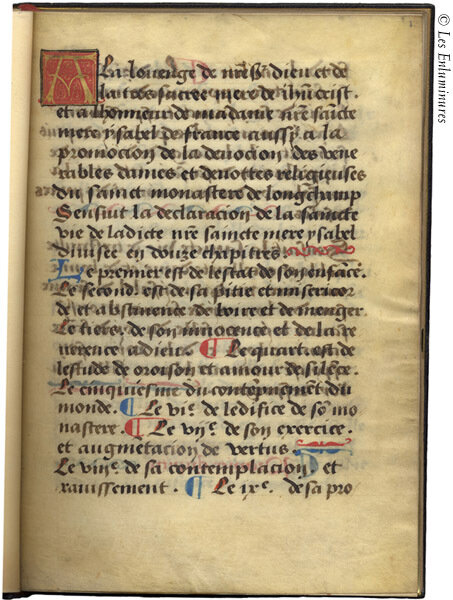 A la louenge de nre Sr dieu et de
la tres sacree mere de ihucrist.
et a lhonneur de madame nre saicte
mere ysabel de france aussy a la
promocion de la deuocion des vene
rables dames et deuottes religieuses
du sainct monastere de longchamp
Sensuit la declaracion de la saincte
vie de ladicte nre saincte mere ysabel
diuisee en douze chapitres
Le premier est de lestat de son enface.
Le second est de sa pitie et misericor
de et abstinence de boire et de menger
Le tiers de son innocence et de la re
uerence a dieu. ¶ Le quart est de
lestude de oroison et amour de silece.
Le cinquiesme du contepnement du
monde. ¶ Le vie. de ledifice de so mo
nastere. ¶ Le viie. de son exercice.
et augmetacion de vertus.
Le viiie. de sa contemplacion. et
rauissement. ¶ Le ixe. de sa pro
© Les Enluminures